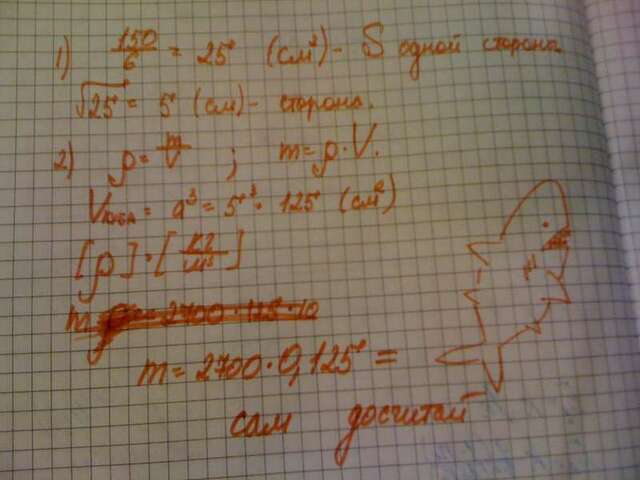 1) 150/6 = 25 (см²) - S одной стороны
√25 = 5 (см) - сторона.
2) ρ = m/V ; m = ρ · V.
Vкуба = a³ = 5³ = 125 (см³)
[ρ] = [кг/м³]
m = 2700 · 125 · 10
m = 2700 · 0,125 =
сам досчитай